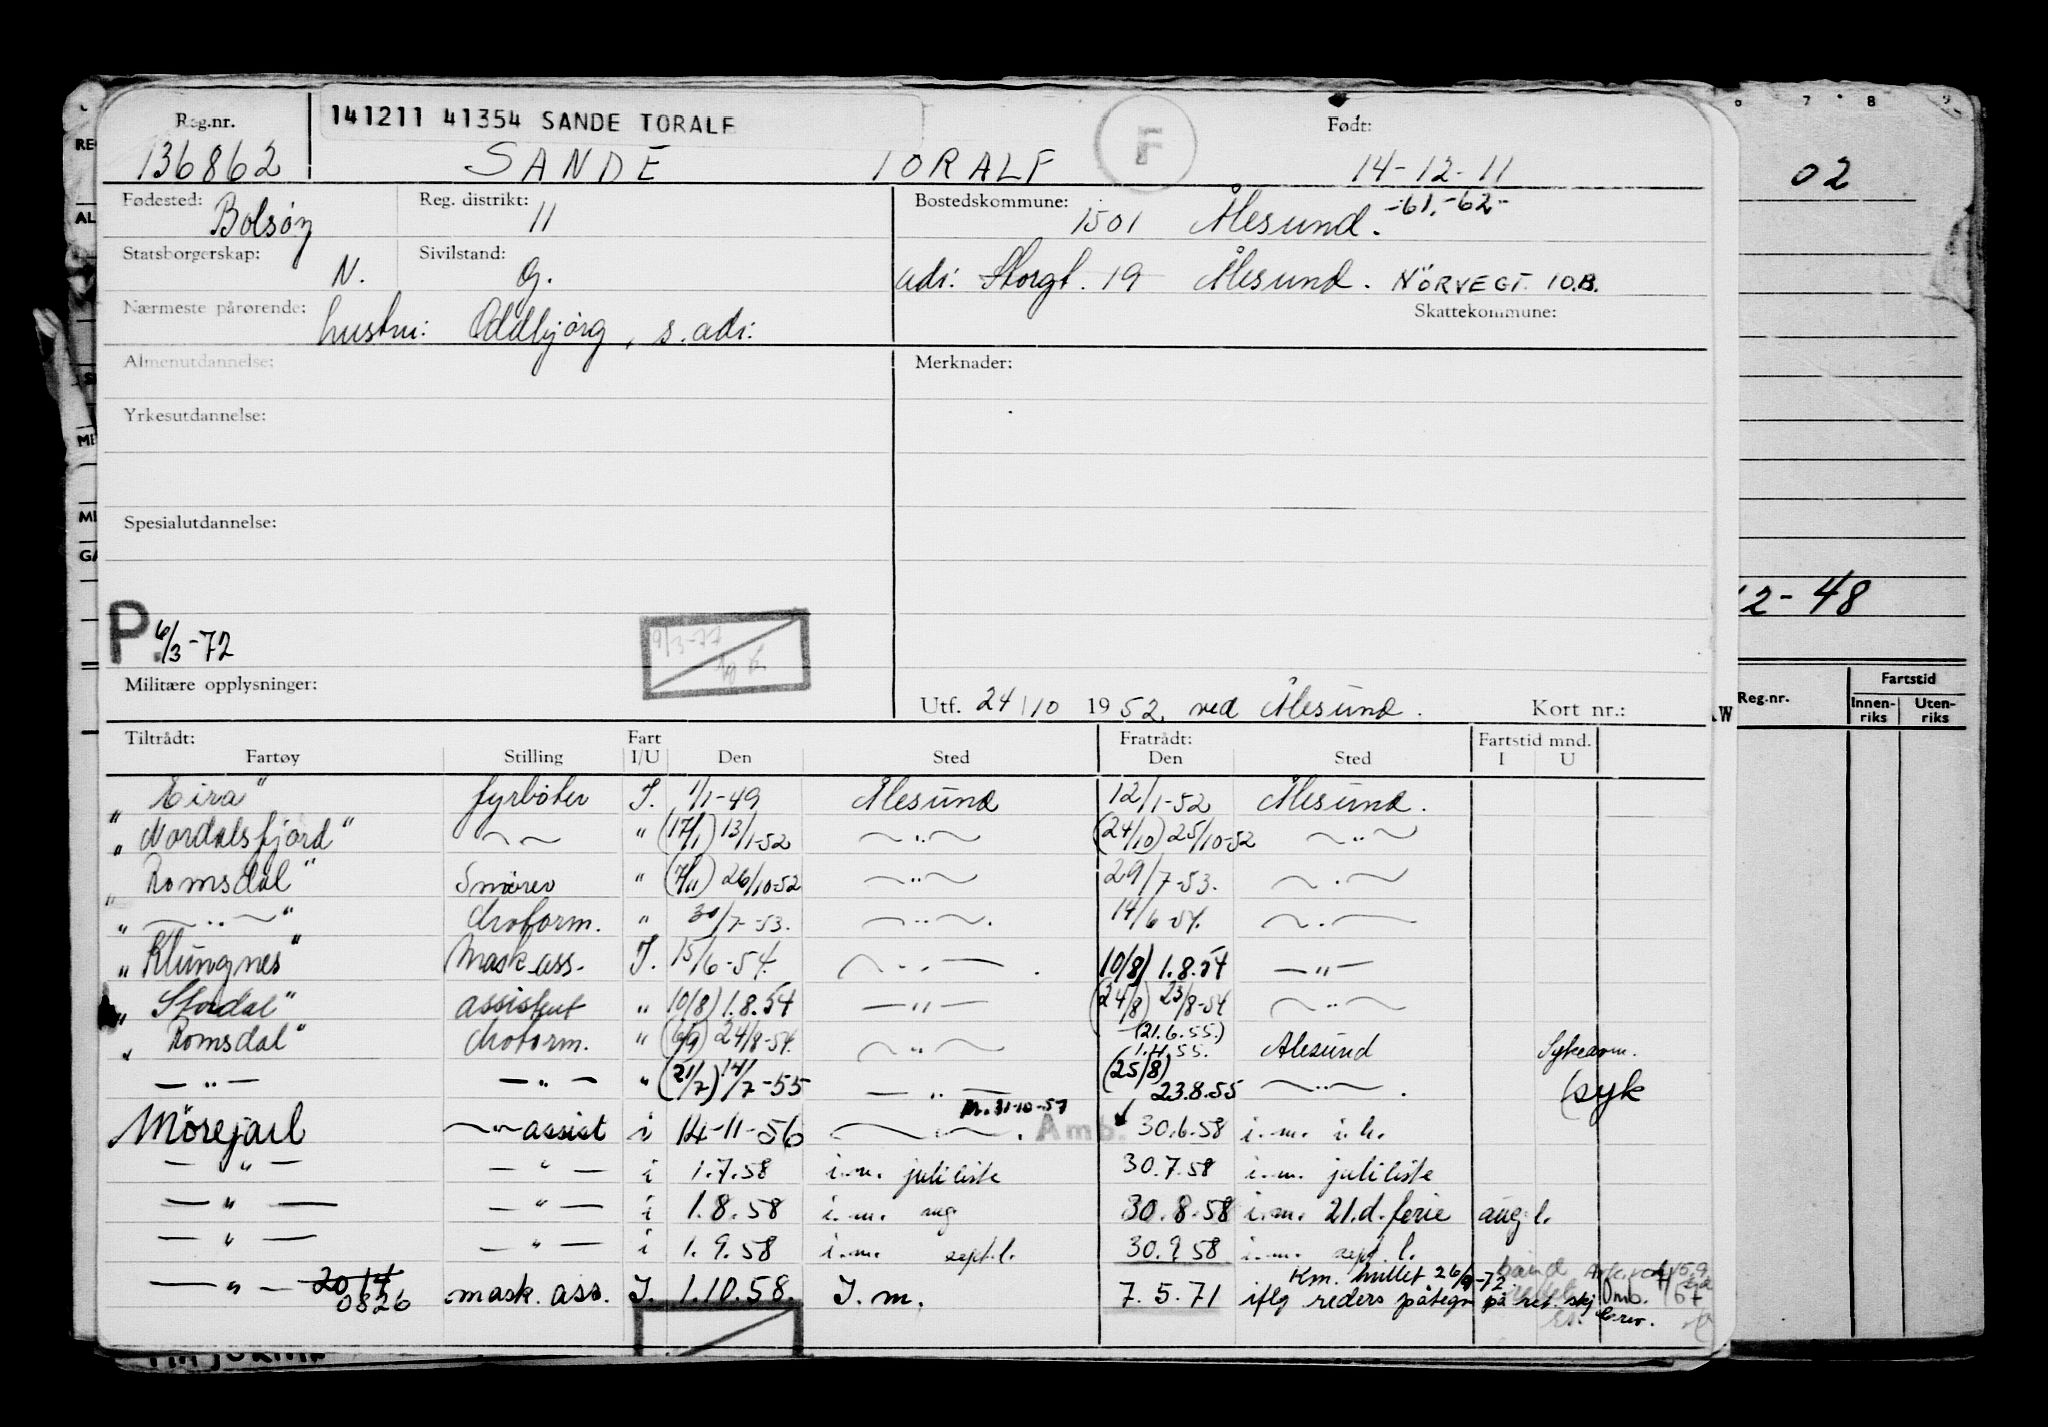 Reg.nr. 141211 41354 SANDE TORALF F Født:
136862 SANDE TORALF 14-12-11
Fødested: Bolsøy Reg. distrikt: 11 Bostedskommune: 1501 Ålesund. -61,-62-
Statsborgerskap: N. Sivilstand: G. adr: Storgt. 19 Ålesund. NÖRVEGT. 10.B.
Nærmeste pårørende: hustru: Oddbjørg, s. adr: Skattekommune:
Almenutdannelse: Merknader:
Yrkesutdannelse:
Spesialutdannelse:
P. 6/3-72 9/3-77
Militære opplysninger:
Utf. 24/10 1952 ved Ålesund. Kort nr.:
Tiltrådt: Fart Fratrådt: Fartstid mnd.
Fartøy Stilling I/U Den Sted Den Sted I U
"Eira" fyrbøter I. 1/1-49 Ålesund 12/1-52 Ålesund.
"Nordalsfjord" ~ ~ " (17/1) 13/1-52 ~ " ~ (24/10) 25/10-52 ~ " ~
"Romsdal" Smører " (7/11) 26/10-52 ~ " ~ 29/7-53. ~ " ~
" ~ " ~ " Motorm. " 30/7-53. ~ " ~. 14/6-54. ~ " ~
"Klungnes" Mask ass. I. 15/6-54. ~ " ~ . 10/8) 1.8.54 — " —
"Stordal" assistent " 10/8) 1.8.54 — " — (24/8) 23/8-54 ~ " ~
"Romsdal" Motorm. " (6/9) 24/8-54. ~ " ~ (21.6.55.) 1.4.55. Ålesund Sykeavm.
— " — — " — " (21/7) 14/7-55 — " — (25/8) 23.8.55 ~ " ~ . (syk
Mörejarl ~ " ~ assist i 14-11-56 ~ " ~ . m. 31-10-57 Amb. 30.6.58 i.m. i.h.
— " — — " — i 1.7.58 i.m. juliliste 30.7.58 i.m. juliliste
— " — — " — i 1.8.58 i.m. aug. 30.8.58 i.m. 21.d. ferie aug.l.
— " — — " — i 1.9.58 i.m. sept.l. 30.9.58 i.m. sept.l.
— " — 2014 0826 mask. ass. I. 1.10.58. I.m. 7.5.71 Km. hullet 26/9-72
iflg reders påtegn på ret. skj Omb.
02
12-48
Reg.nr. Fartstid
Innenriks Utenriks